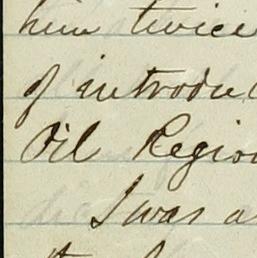 him twice
of introduc
Oil Region
I was a